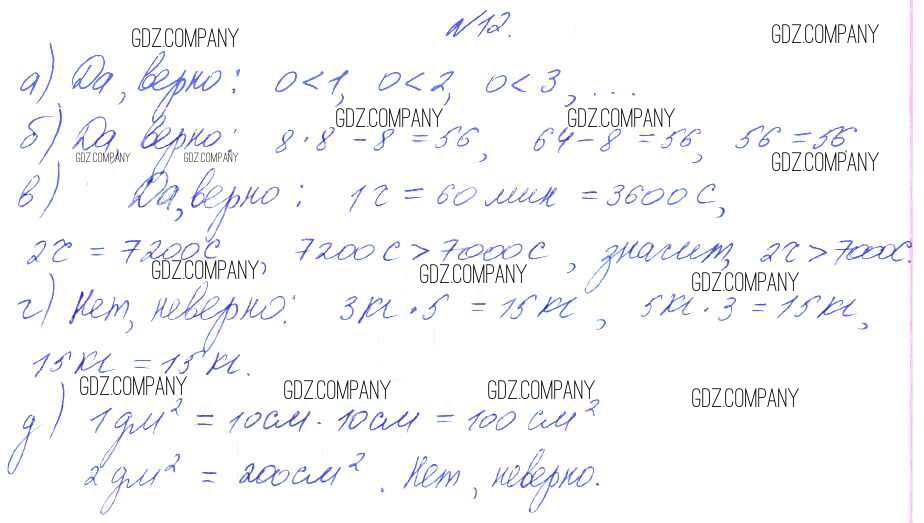 №12.
GDZ.COMPANY GDZ.COMPANY
а) Да, верно: 0<1, 0<2, 0<3, ...
GDZ.COMPANY GDZ.COMPANY
б) Да, верно: 8·8-8=56, 64-8=56, 56=56.
GDZ.COMPANY GDZ.COMPANY GDZ.COMPANY
в) Да, верно: 1ч = 60 мин = 3600 с,
2ч = 7200с, 7200с>7000с, значит, 2ч>7000с.
GDZ.COMPANY GDZ.COMPANY GDZ.COMPANY
г) Нет, неверно: 3кг·5 = 15кг, 5кг·3=15кг,
15кг = 15кг.
GDZ.COMPANY GDZ.COMPANY GDZ.COMPANY GDZ.COMPANY
д) 1дм² = 10см·10см = 100см²
2дм² = 200см². Нет, неверно.